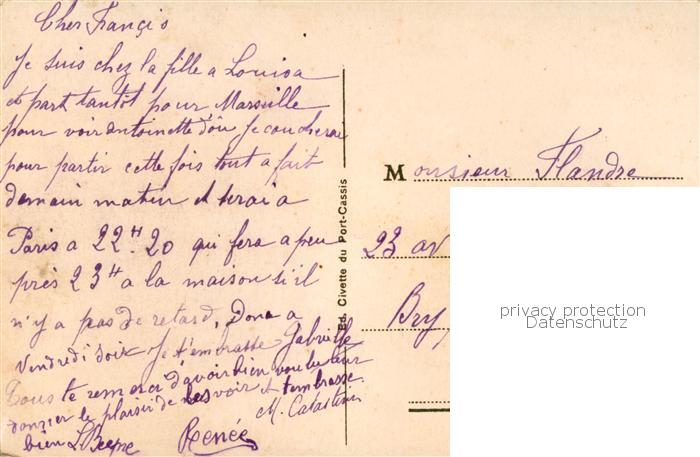 Cher Françis
Je suis chez la fille a Louisa
et part tantôt pour Marseille
pour voir antoinette d'ou Je coucherai
pour partir cette fois tout a fait
demain matin et serai a
Paris a 22H20 qui fera a peu
près 23H a la maison si il
n'y a pas de retard, Donc a
Vendredi soir Je t'embrasse Gabrielle
Tous te remerci d'avoir bien voulu leur
donner le plaisir de les voir et t'embrasse
bien
M.
Renée
Ed. Civette du Port-Cassis
Monsieur Flandre
23 av
Bry
privacy protection
Datenschutz